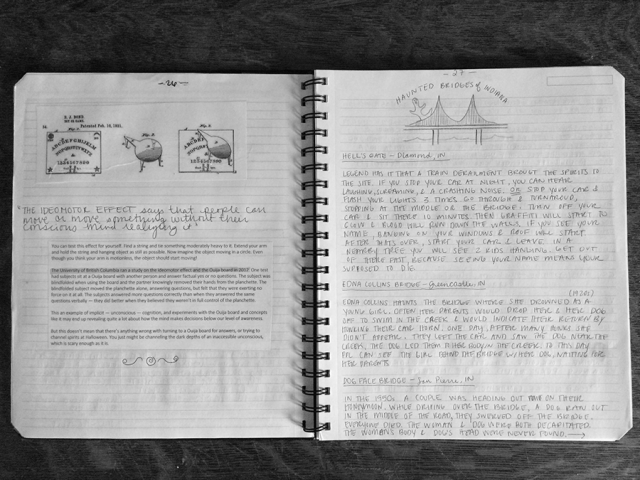 - 26 -
"THE IDEOMOTOR EFFECT says that people can
move or move something without their
conscious mind realizing it"
This can test this effect for yourself. Find a string and tie something moderately heavy to it. Extend your arm
and hold the string and hanging object as still as possible. Now imagine the object moving in a circle. Even
though you think your arm is motionless, the object should start moving!
The University of British Columbia ran a study on the ideomotor effect and the Ouija board in 2012. One test
had subjects sit at a Ouija board with another person and answer factual yes or no questions. The subject was
blindfolded when using the board and the partner knowingly removed their hands from the planchette. The
blindfolded subject moved the planchette alone, answering questions, but felt that they were exerting no
force on it at all. The subjects answered more questions correctly than when they answered the same
questions verbally — they did better when they believed they weren't in full control of the planchette.
This an example of implicit — unconscious — cognition, and experiments with the Ouija board and concepts
like it may end up revealing quite a lot about how the mind makes decisions below our level of awareness.
But this doesn't mean that there's anything wrong with turning to a Ouija board for answers, or trying to
channel spirits at Halloween. You just might be channeling the dark depths of an inaccessible unconscious,
which is scary enough as it is.
- 27 -
HAUNTED BRIDGES of INDIANA
HELL'S GATE - Diamond, IN
LEGEND HAS IT THAT A TRAIN DERAILMENT BROUGHT THE SPIRITS TO
THE SITE. IF YOU STOP YOUR CAR AT NIGHT, YOU CAN HEAR
LAUGHING, SCREAMING, & A CRASHING NOISE. OR STOP YOUR CAR &
FLASH YOUR LIGHTS 3 TIMES, GO THROUGH & TURNAROUND,
STOPPING AT THE MIDDLE OF THE BRIDGE. TURN OFF YOUR
CAR & SIT THERE 10 MINUTES. THEN GRAFFITI WILL START TO
GLOW & BLOOD WILL RUN DOWN THE WALLS. IF YOU SEE YOUR
NAME, BANGING ON YOUR WINDOWS & ROOF WILL START.
AFTER THAT'S OVER, START YOUR CAR & LEAVE. IN A
NEARBY TREE YOU WILL SEE 2 KIDS HANGING. GET OUT
OF THERE FAST, BECAUSE SEEING YOUR NAME MEANS YOUR
SUPPOSED TO DIE.
EDNA COLLINS BRIDGE - Greencastle, IN
EDNA COLLINS HAUNTS THE BRIDGE WHERE SHE DROWNED AS A
YOUNG GIRL. OFTEN HER PARENTS WOULD DROP HER & HER DOG
OFF TO SWIM IN THE CREEK & WOULD INDICATE THEIR RETURN BY
HONKING THEIR CAR HORN. ONE DAY, AFTER MANY HONKS SHE
DIDN'T APPEAR. THEY LEFT THE CAR AND SAW THE DOG NEAR THE
CREEK. THE DOG LED THEM
TO THIS DAY
CAN SEE THE GIRL BEHIND THE BRIDGE W/ HER DOG, WAITING FOR
HER PARENTS
DOG FACE BRIDGE - San Pierre, IN
IN THE 1950s A COUPLE WAS HEADING OUT ON THEIR
HONEYMOON. WHILE DRIVING OVER THE BRIDGE, A DOG RAN OUT
IN THE MIDDLE OF THE ROAD, THEY SWERVED OFF THE BRIDGE &
EVERYONE DIED. THE WOMAN & DOG WERE BOTH DECAPITATED.
THE WOMAN'S BODY & DOG'S HEAD WERE NEVER FOUND. →